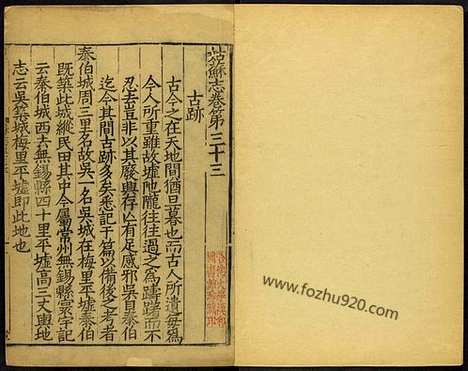 姑蘇志卷第三十三
古跡
古今之在天地間猶旦暮也而古人所遺每爲
今人所重雖故墟陁隴往往過之爲躊躇而不
忍去豈非以其廢興存亾有足感邪吳自泰伯
迄今其間古跡多矣悉記于篇以備後之考者
泰伯城周三里名故吳一名吳城在梅里平墟泰伯
既築此城縱民田其中今屬常州無錫縣寰宇記
云泰伯城西去無錫縣四十里平墟高三丈輿地
志云吳築城梅里平墟即此地也
www.fozhu920.com